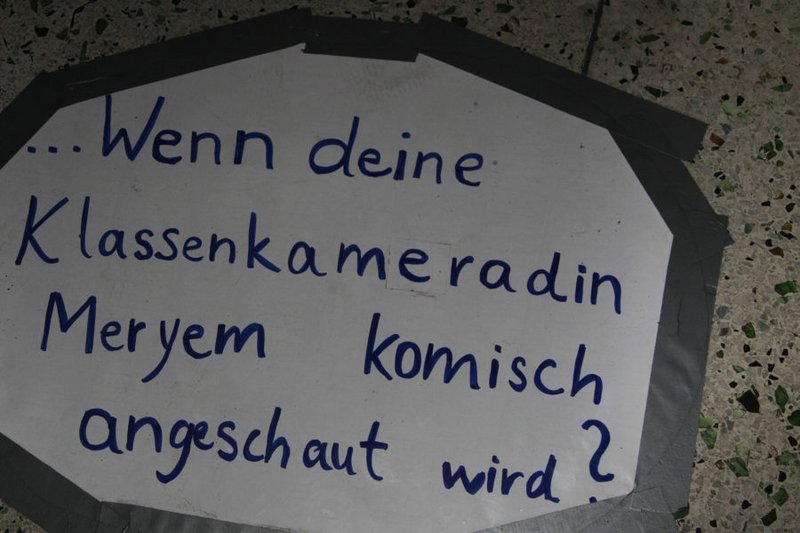 ...Wenn deine
Klassenkameradin
Meryem komisch
angeschaut wird?